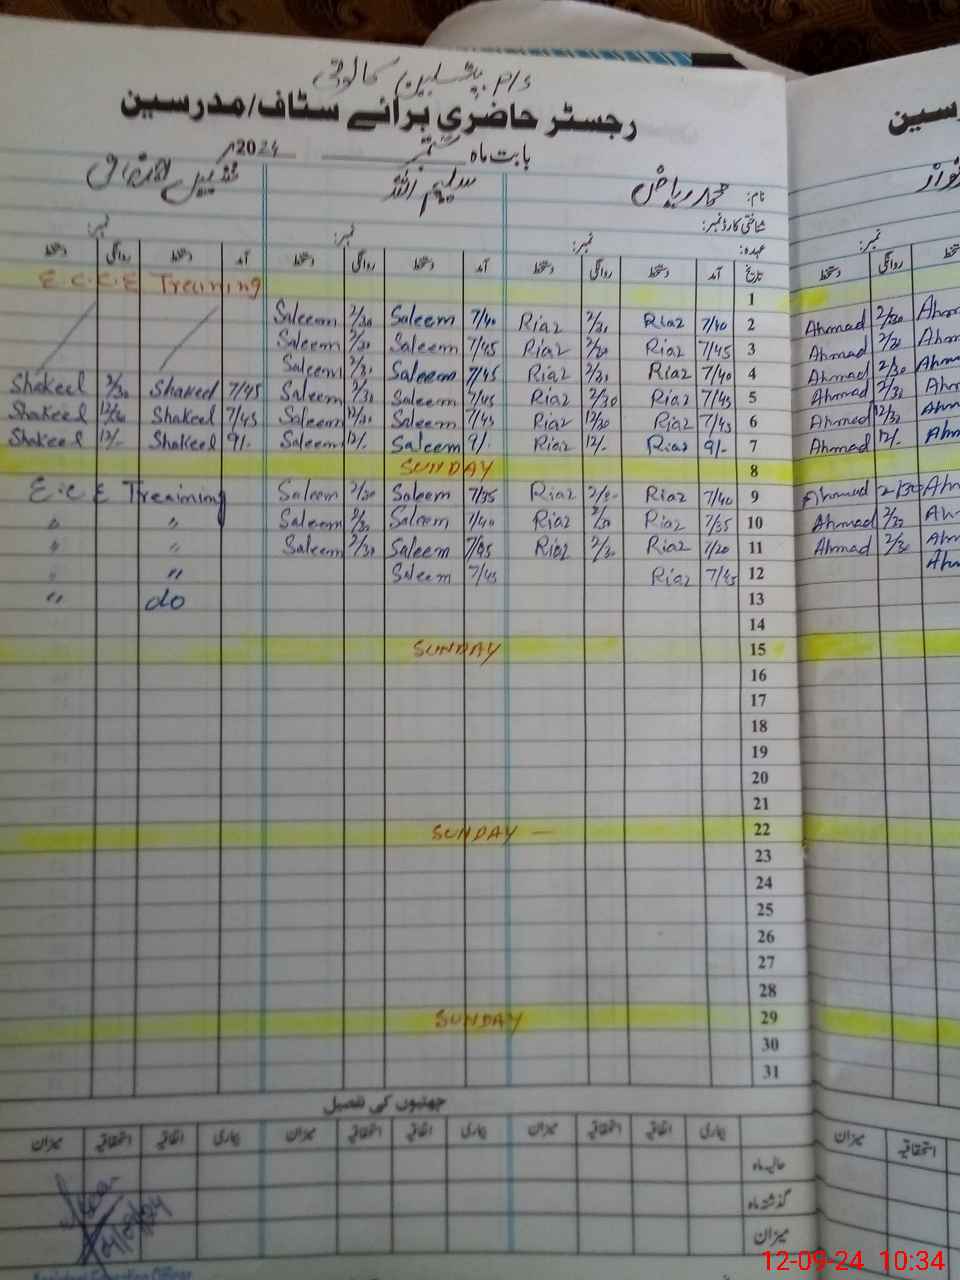 رجسٹر حاضری برائے سٹاف/مدرسین
بابت ماہ ستمبر 2024ء
نام: محمد ریاض سلیم اللہ
شناختی کارڈ نمبر:
عہدہ: نمبر: نمبر: نمبر: نمبر:
تاریخ آمد دستخط روانگی دستخط آمد دستخط روانگی دستخط آمد دستخط روانگی دستخط
E.C.C.E Treaining 1
Saleem 2/30 Saleem 7/40 Riaz 2/30 Riaz 7/40 2 Ahmad 2/30
Saleem 2/30 Saleem 7/45 Riaz 2/30 Riaz 7/45 3 Ahmad 2/30
Saleem 2/30 Saleem 7/45 Riaz 2/30 Riaz 7/40 4 Ahmad 2/30
Shakeel 2/30 Shakeel 7/45 Saleem 2/30 Saleem 7/45 Riaz 2/30 Riaz 7/45 5 Ahmad 2/30
Shakeel 12/30 Shakeel 7/45 Saleem 12/30 Saleem 7/45 Riaz 12/30 Riaz 7/45 6 Ahmad 12/30
Shakeel 12/- Shakeel 9/- Saleem 12/- Saleem 9/- Riaz 12/- Riaz 9/- 7 Ahmad 12/-
SUNDAY 8
E.C E Treaining Saleem 2/30 Saleem 7/35 Riaz Riaz 7/40 9 Ahmad 2/30
" " Saleem 2/30 Saleem 7/40 Riaz 2/30 Riaz 7/35 10 Ahmad
" " Saleem 2/30 Saleem Riaz 2/30 Riaz 7/20 11 Ahmad 2/30
" " Saleem 7/45 Riaz 7/45 12
" do 13
14
SUNDAY 15
16
17
18
19
20
21
SUNDAY — 22
23
24
25
26
27
28
SUNDAY 29
30
31
چھٹیوں کی تفصیل
بیماری اتفاقیہ استحقاقیہ میزان بیماری اتفاقیہ استحقاقیہ میزان بیماری اتفاقیہ استحقاقیہ میزان استحقاقیہ میزان
حالیہ ماہ
گذشتہ ماہ
میزان
12-09-24 10:34